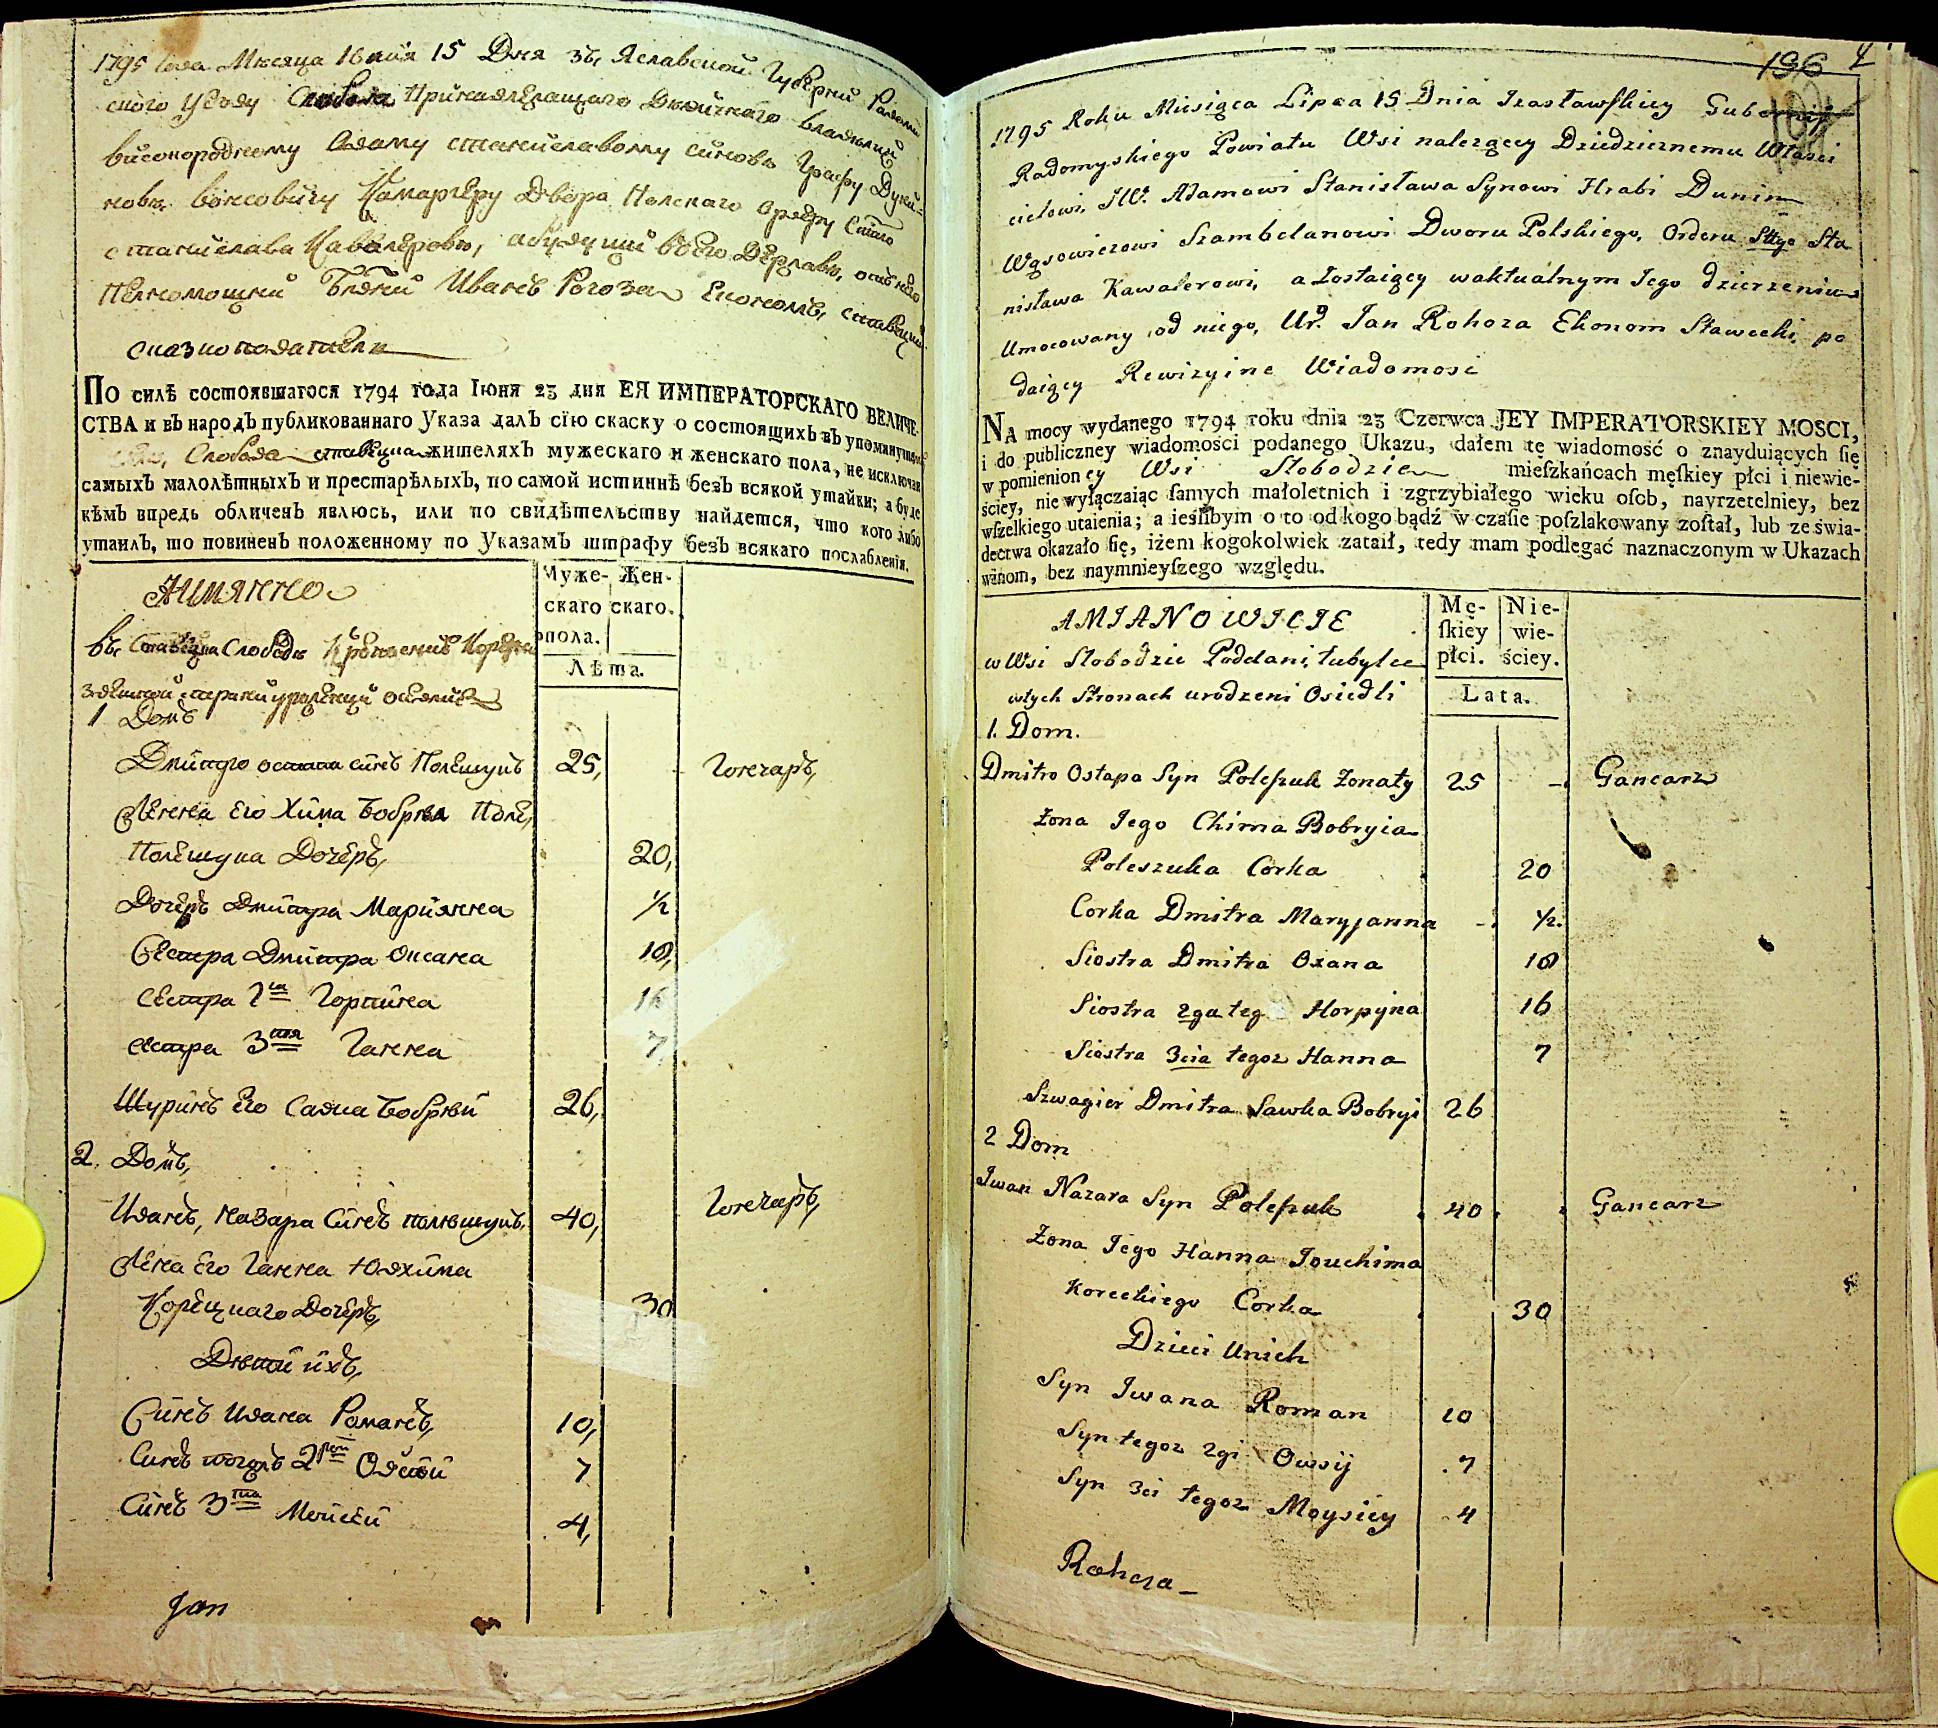 1795 года Месяца Июля 15 Дня Зъ, Яславской Губернии Радоми
ского уезду Слобода Принадлежащаго
високородному Адаму станиславому синовъ Графу Дуни=
новъ вонсовичу Камаргеру Двора Полскаго Ордеру Стаго
станислава Каволеровъ,
Иванъ Рогоза Економъ,
сказкоподатели
ПО силѣ состоявшагося 1794 года Іюня 23 дня ЕЯ ИМПЕРАТОРСКАГО ВЕЛИЧЕ-
СТВА и въ народъ публикованнаго Указа далъ сїю скаску о состоящихъ въ упомянутой
Слобода ставецка жителяхъ мужескаго и женскаго пола, не исключая
самыхъ малолѣтныхъ и престарѣлыхъ, по самой истиннѣ безъ всякой утайки; а буде
кѣмъ впредь обличенъ явлюсь, или по свидѣтельству найдется, что кого либо
утаилъ, то повиненъ положенному по Указамъ штрафу безъ всякаго послабленія.
АИМЯННО
Муже- скаго пола.
Жен- скаго.
Лѣта.
въ Ставецка Слободъ
1 Домъ
Дмитро остапа синъ Полешукъ 25, Гончаръ,
Женна его Хима Бобрыя Поле,
Полешука Дочеръ, 20,
Дочеръ Дмитра Марианна ½
Сестра Дмитра Оксана 18,
Сестра 2га Горпина 16
сестра 3тяя Ганна 7
Шуринъ его Савка Бобрый 26,
2. Домъ,
Иванъ, Назара Синъ полешукъ, 40, Гончаръ,
Жена его Ганна Юахима
Корецкаго Дочеръ, 30
Дети ихъ,
Синъ Ивана Романъ, 10,
Синъ тогожъ 2рой Овсий 7
Синъ 3тий Мойсей 4,
Jan
196 4
1795 Roku Miesiąca Lipca 15 Dnia Izasławskiey Gubernij
Radomyskiego Powiatu Wsi należącey Dziedzicznemu Właści
cielowi, JW. Adamowi Stanisława Synowi Hrabi Dunin
Wąsowiczowi Szambelanowi Dworu Polskiego, Orderu Sttgo Sta
nisława Kawalerowi, a Zostaiący waktualnym Jego dzierzeniu
Umocowany od niego, Ur. Jan Rohoza Ekonom Stawecki, po
daiący Rewizyine Wiadomosi
NA mocy wydanego 1794 roku dnia 23 Czerwca JEY IMPERATORSKIEY MOSCI,
i do publiczney wiadomości podanego Ukazu, dałem tę wiadomość o znayduiących się
w pomienioney Wsi Slobodzie mieſzkańcach męſkiey płci i niewie-
ściey, nie wyłączaiąc ſamych małoletnich i zgrzybiałego wieku oſob, nayrzetelniey, bez
wſzelkiego utaienia; a ieślibym o to od kogo bądź w czaſie poſzlakowany zoſtał, lub ze świa-
dectwa okazało ſię, iżem kogokolwiek zataił, tedy mam podlegać naznaczonym w Ukazach
winom, bez naymnieyſzego względu.
AMIANOWICIE
Mę- ſkiey płci.
Nie- wie- ściey.
Lata.
w Wsi Slobodzie Poddani, tubylce
wtych Stronach urodzeni Osiedli
1. Dom.
Dmitro Ostapa Syn Poleſzuk Zonaty 25 - Gancarz
Zona Jego Chima Bobryia
Poleszuka Corka 20
Corka Dmitra Maryjanna - ½.
Siostra Dmitra Oxana 18
Siostra 2ga teg Horpyna 16
Siostra 3cia tegoz Hanna 7
Szwagier Dmitra Sawka Bobryi 26
2 Dom
Iwan Nazara Syn Poleſzuk 40 Gancarz
Zona Jego Hanna Jouchima
Koreckiego Corka 30
Dzieci Unich
Syn Iwana Roman 10
Syn tegoz 2gi Owsij 7
Syn 3ci tegoz Moysiey 4
Rohoza